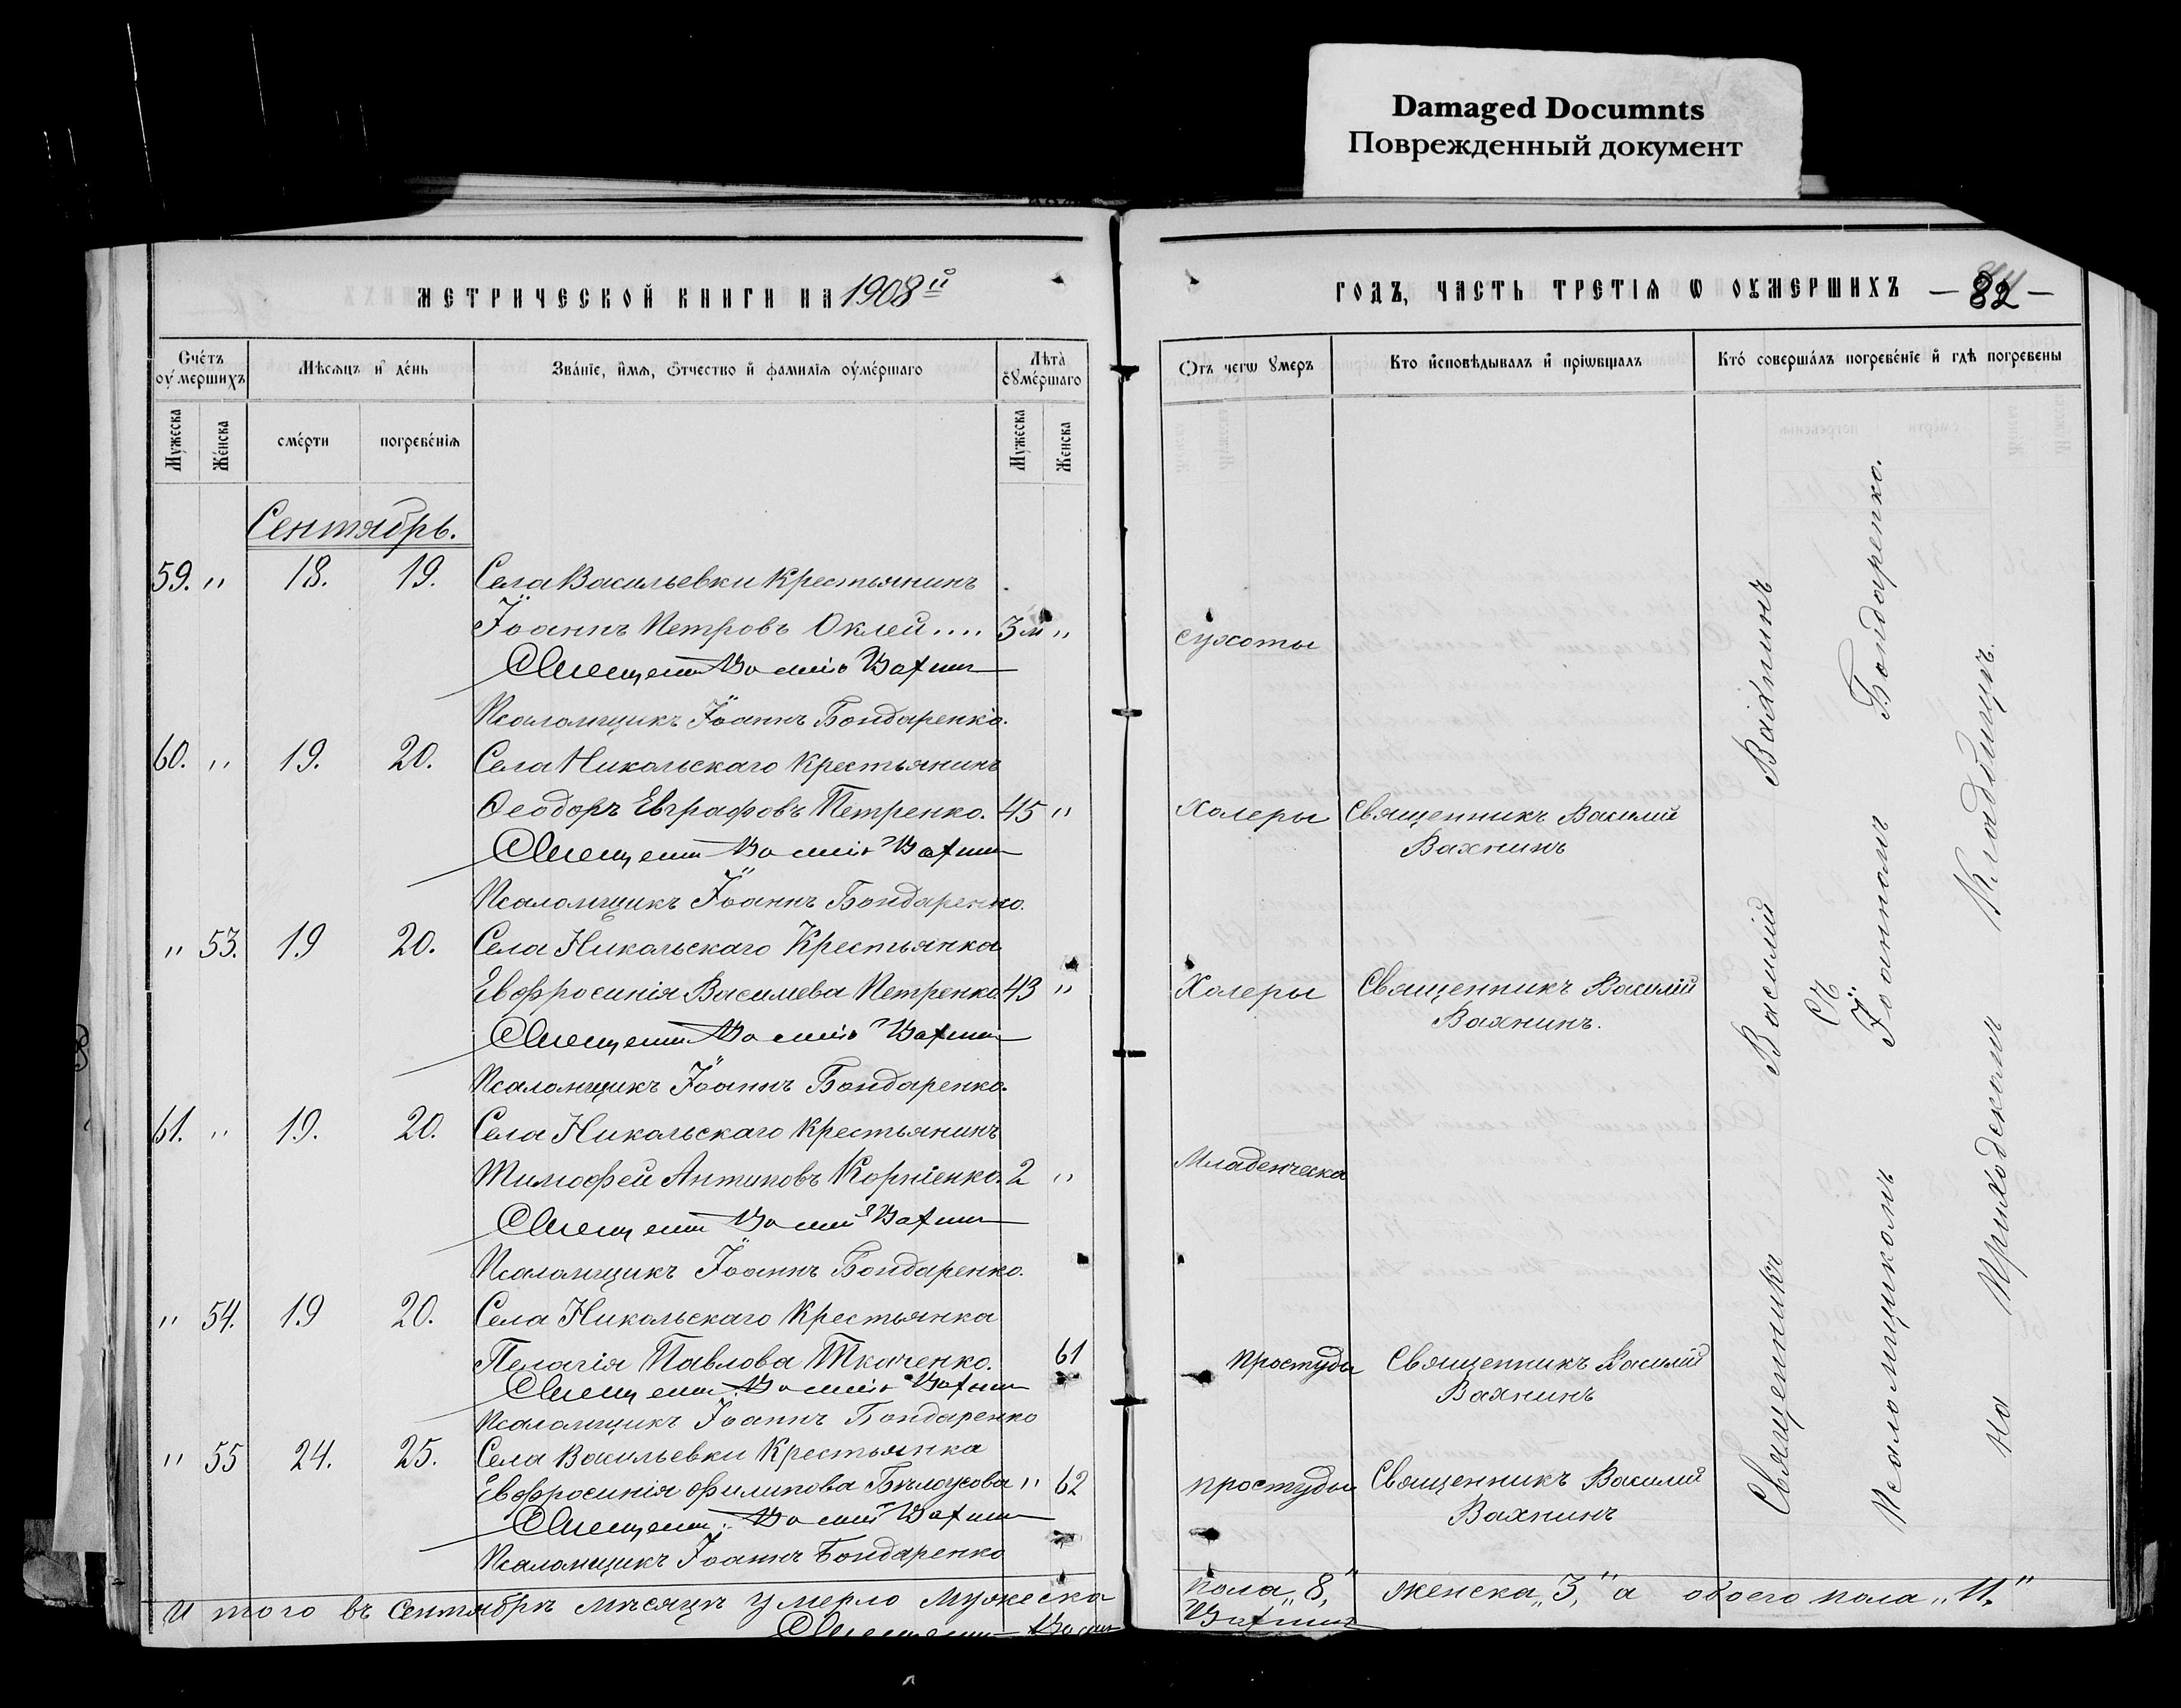 Damaged Documnts
Поврежденный документ
МЕТРИЧЕСКОЙ КНИГИ НА 1908й
ГОДЪ, ЧАСТЬ ТРЕТІѦ Ѡ ОУМЕРШИХЪ — 82 —
Счéтъ оумершихъ
Мѣсѧцъ и дéнь
Звáнїе, и́мѧ, ѻ҆́тчество и҆ фамилїѧ оумéршаго
Лѣтà оумéршаго
Ѿтъ чегѡ ᲂумеръ
Кто и҆сповѣдывалъ и҆ прїѡбщалъ
Ктó совершáлъ погребéнїе и҆ гдѣ̀ погребены
Мужеска
Жéнска
смéрти
погребéнїѧ
Мужеска
Женска
Сентябрь.
59. " 18. 19. Села Васильевки Крестьянинъ
Іоаннъ Петровъ Оклей.... 3 м " Сухоты
Священникъ Василій Вахнинъ
Псаломщикъ Іоаннъ Бондаренко.
60. " 19. 20. Села Никольскаго Крестьянинъ
Ѳеодоръ Евграфовъ Петренко. 45 " Холеры Священникъ Василий
Вахнинъ
Священникъ Василій Вахнинъ
Псаломщикъ Іоаннъ Бондаренко.
" 53. 19 20. Села Никольскаго Крестьянка
Евфросинія Василиева Петренко 43 " Холеры Священникъ Василій
Вахнинъ.
Священникъ Василій Вахнинъ
Псаломщикъ Іоаннъ Бондаренко.
61. " 19. 20. Села Никольскаго Крестьянинъ
Тимофей Антиповъ Корніенко. 2 " Младенческа
Священникъ Василій Вахнинъ
Псаломщикъ Іоаннъ Бондаренко.
" 54. 19 20. Села Никольскаго Крестьянка
Пелагія Павлова Ткаченко. 61 Простуды Священникъ Василій
Вахнинъ
Священникъ Василій Вахнинъ
Псаломщикъ Іоаннъ Бондаренко
" 55 24. 25. Села Васильевки Крестьянка
Евфросинія Филипова Бѣлоусова " 62 простуды Священникъ Василий
Вахнинъ
Священникъ Василій Вахнинъ
Псаломщикъ Іоаннъ Бондаренко
Священникъ Василій Вахнинъ
съ
Псаломщикомъ Іоанномъ Бондаренко.
на Приходскомъ Кладбищѣ.
Итого въ Сентябрѣ мѣсяцѣ умерло мужеска пола „8," женска „3," а обоего пола „11."
Священникъ Василій Вахнинъ